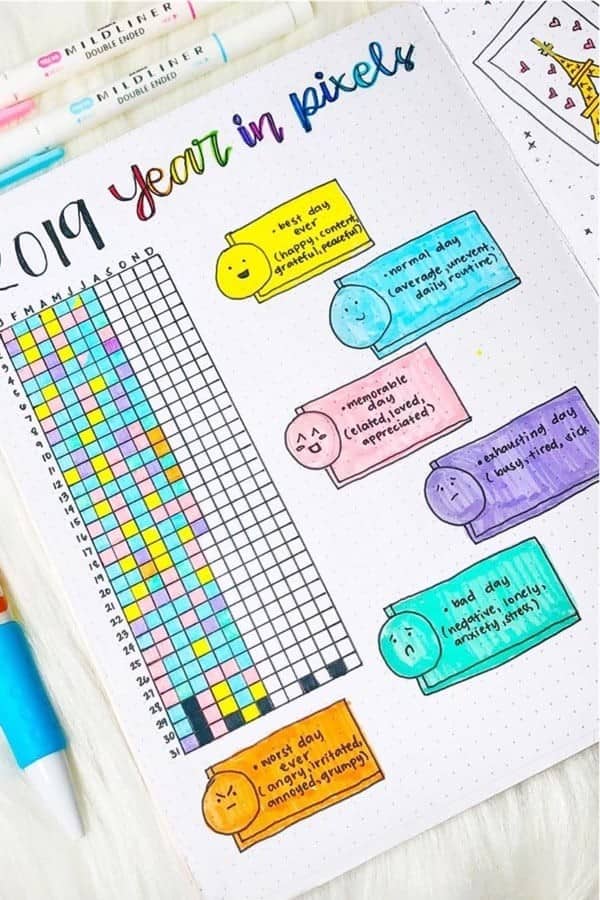 MILDLINER
DOUBLE ENDED
MILDLINER
DOUBLE ENDED
2019 year in pixels
J F M A M J J A S O N D
2
3
4
5
6
7
8
9
10
11
12
13
14
15
16
17
18
19
20
21
22
23
24
25
27
28
29
30
31
• best day
ever
(happy, content,
grateful, peaceful)
• normal day
(average, unevent,
daily routine)
• memorable
day
(elated, loved,
appreciated)
• exhausting day
(busy, tired, sick
• bad day
(negative, lonely,
anxiety, stress)
• worst day
ever
(angry, irritated,
annoyed, grumpy)